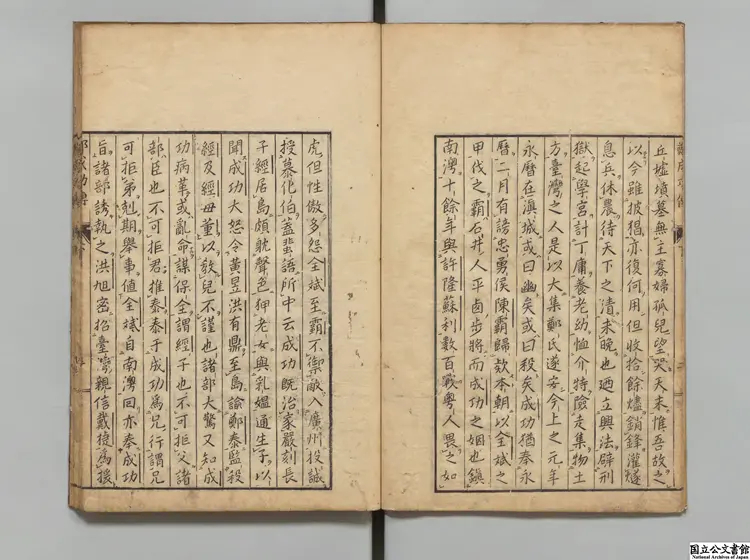 丘墟墳墓無主寡婦孤兒望哭天末惟吾故之
以今雖披猖亦復何用但收拾餘燼銷鋒灌燧
息兵休農待天下之清未晚也廼立興法辟刑
獄起學宮計丁庸養老幼恤介特險走集物土
方臺灣之人是以大集鄭氏遂安今上之元年
永曆在滇城或曰幽矣或曰殺矣成功猶奉永
曆二月有謗忠勇侯陳霸歸欵本朝以全斌之
甲伐之霸石井人平鹵步將而成功之姻也鎮
南澳十餘年與許隆蘇利數百戰粵人畏之如
虎但性傲多怨全斌至霸不禦敵入廣州投誠
授慕化伯蓋蜚語所中云成功既治家嚴刻長
子經居島頗躭聲色狎老女與乳媼通生子以
聞成功大怨令黃昱洪有鼎至島諭鄭泰監殺
經及經母董以敎兒不謹也諸部大驚又知成
功病革或亂命謀保全謂經子也不可拒父諸
部臣也不可拒君推泰泰于成功為兄行謂兄
可拒弟剋期舉事值全斌自南澳回亦奉成功
旨諸部誘執之洪旭密招臺灣親信戴捷為援
國立公文書館
National Archives of Japan